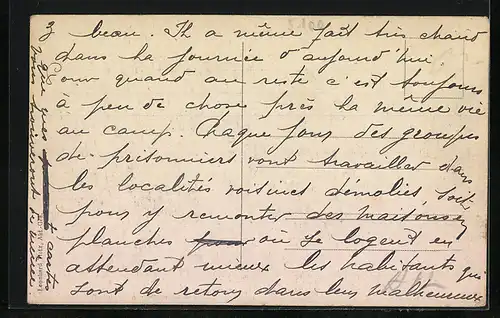 3 beau. Il a même fait très chaud
dans la journée d'aujourd'hui.
Pour quand au reste c'est toujours
à peu de chose près la même vie
au camp. Chaque jour des groupes
de prisonniers vont travailler dans
les localités voisines démolies, soit
pour y remonter des maisons en
planches où se logent en
attendant mieux les habitants qui
sont de retour dans leur malheureux
que ques cartes
vous trouveront